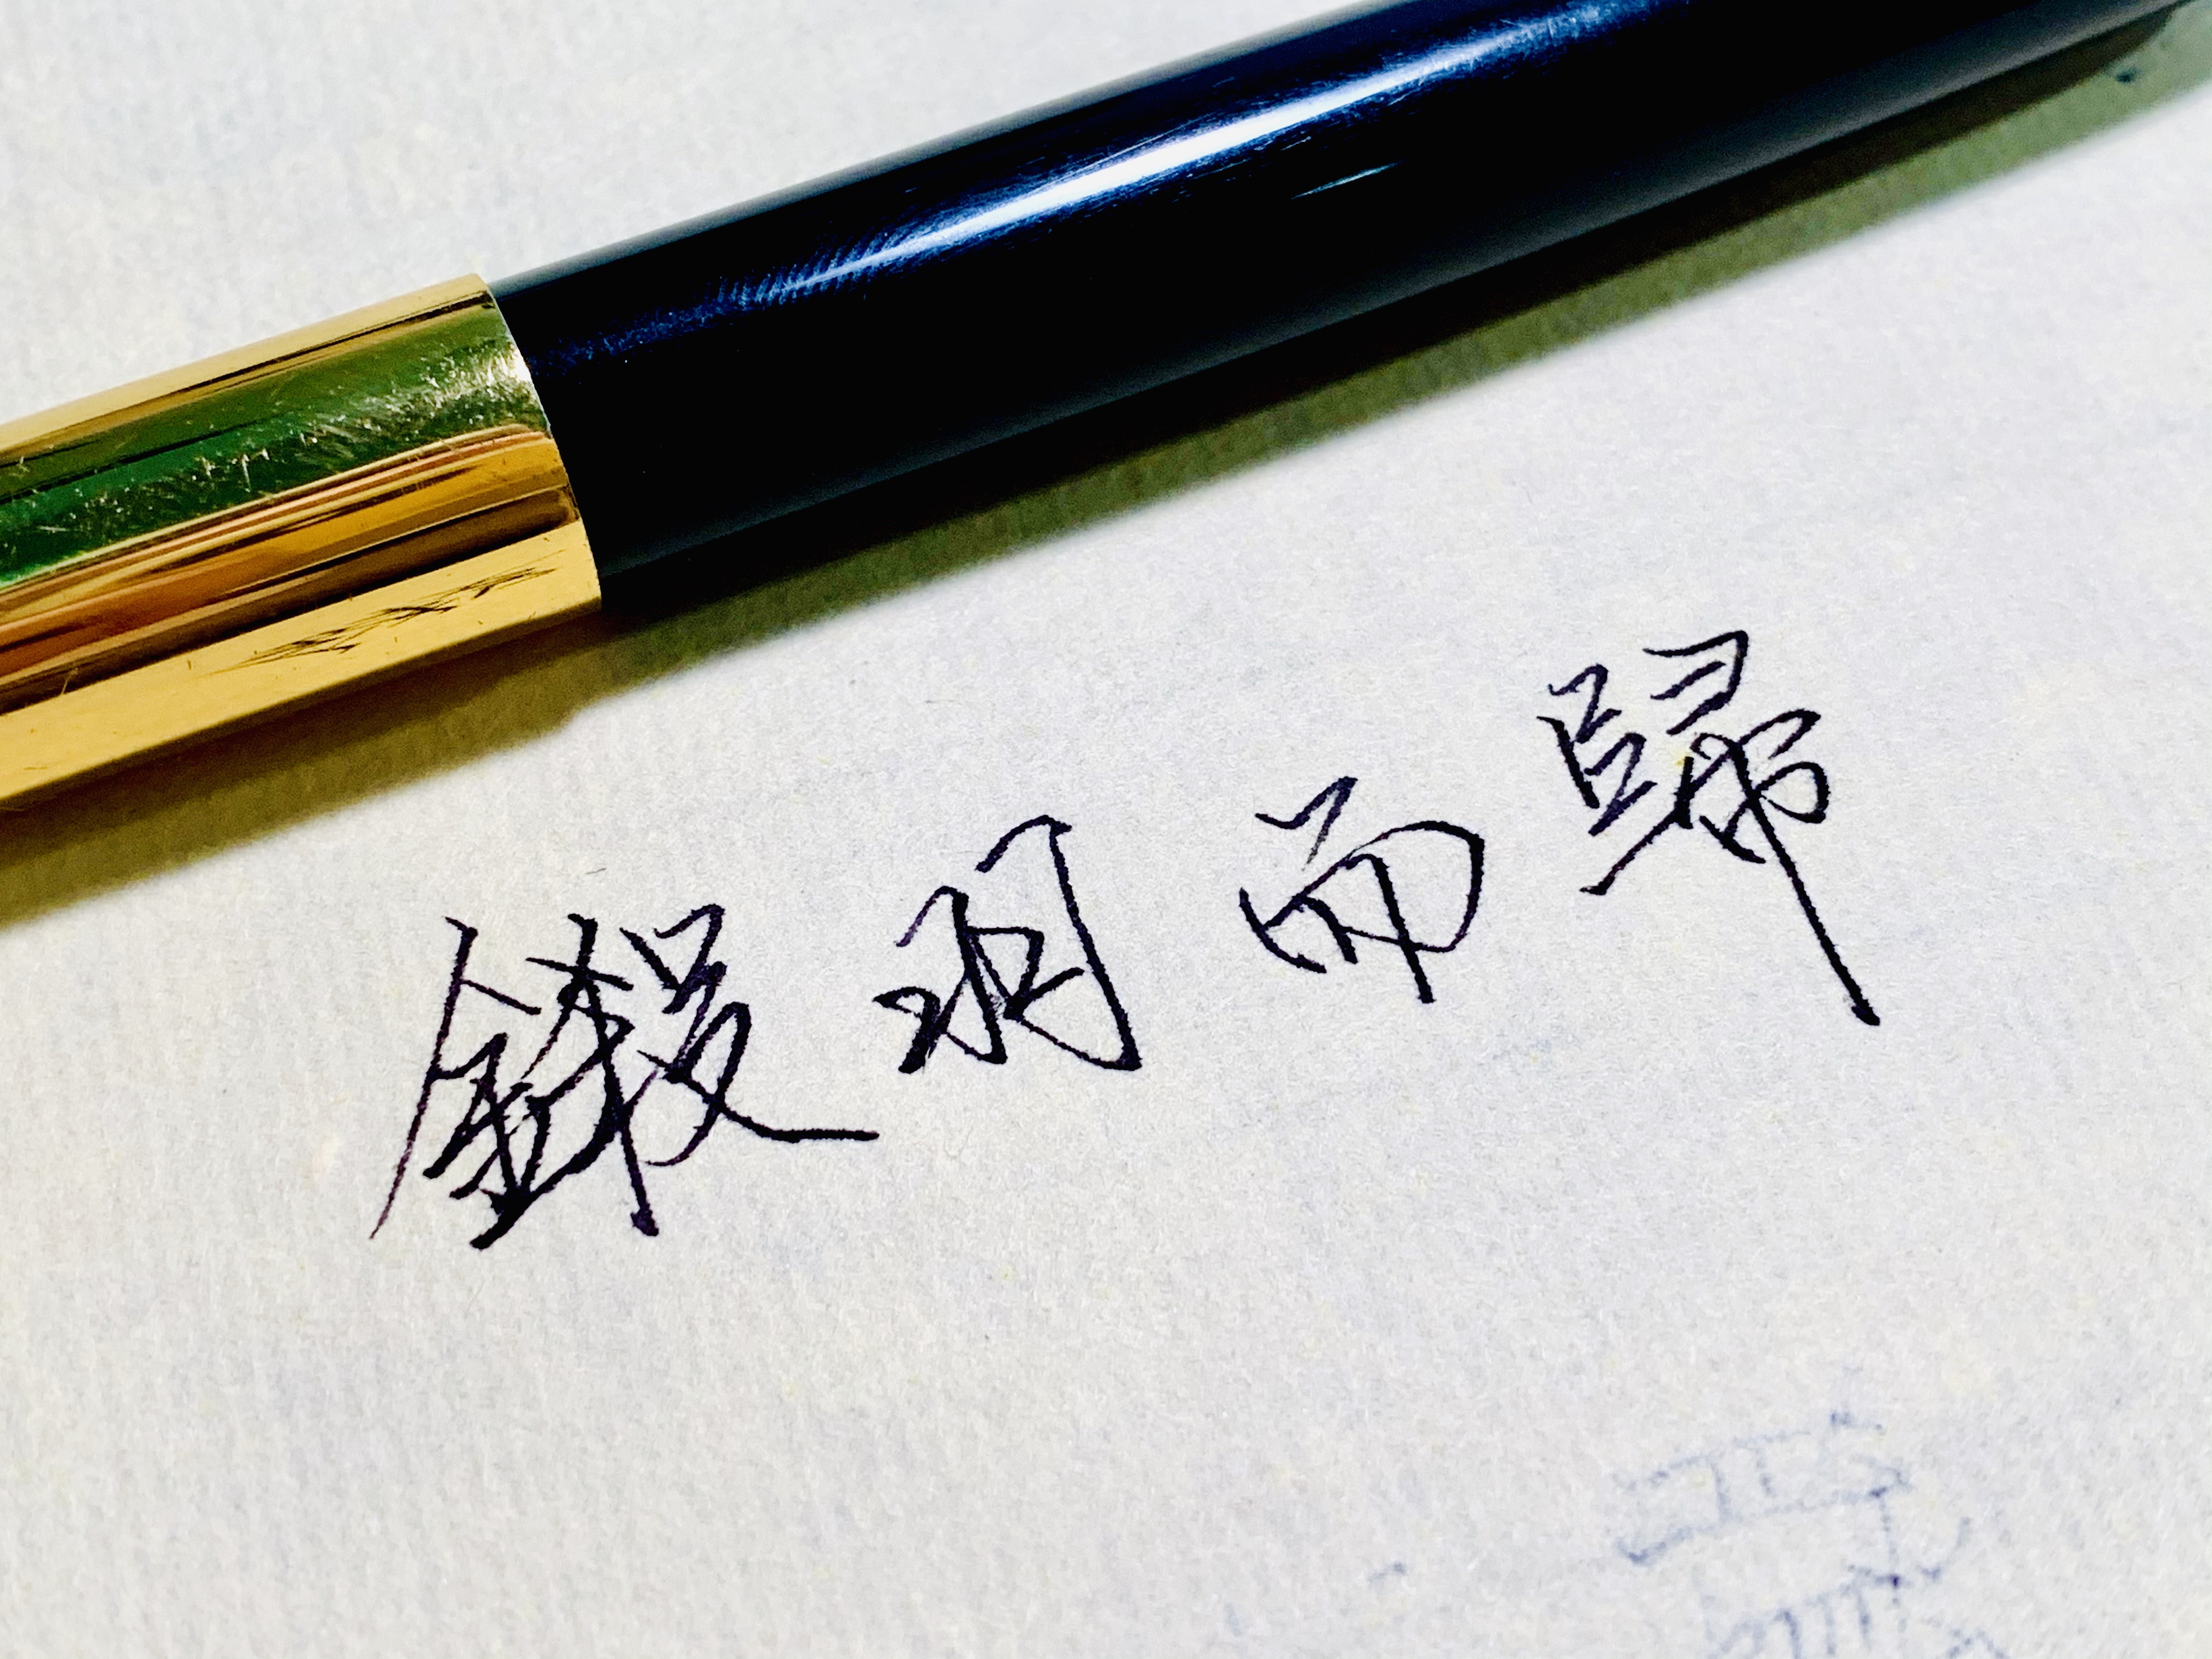 鎩羽而歸